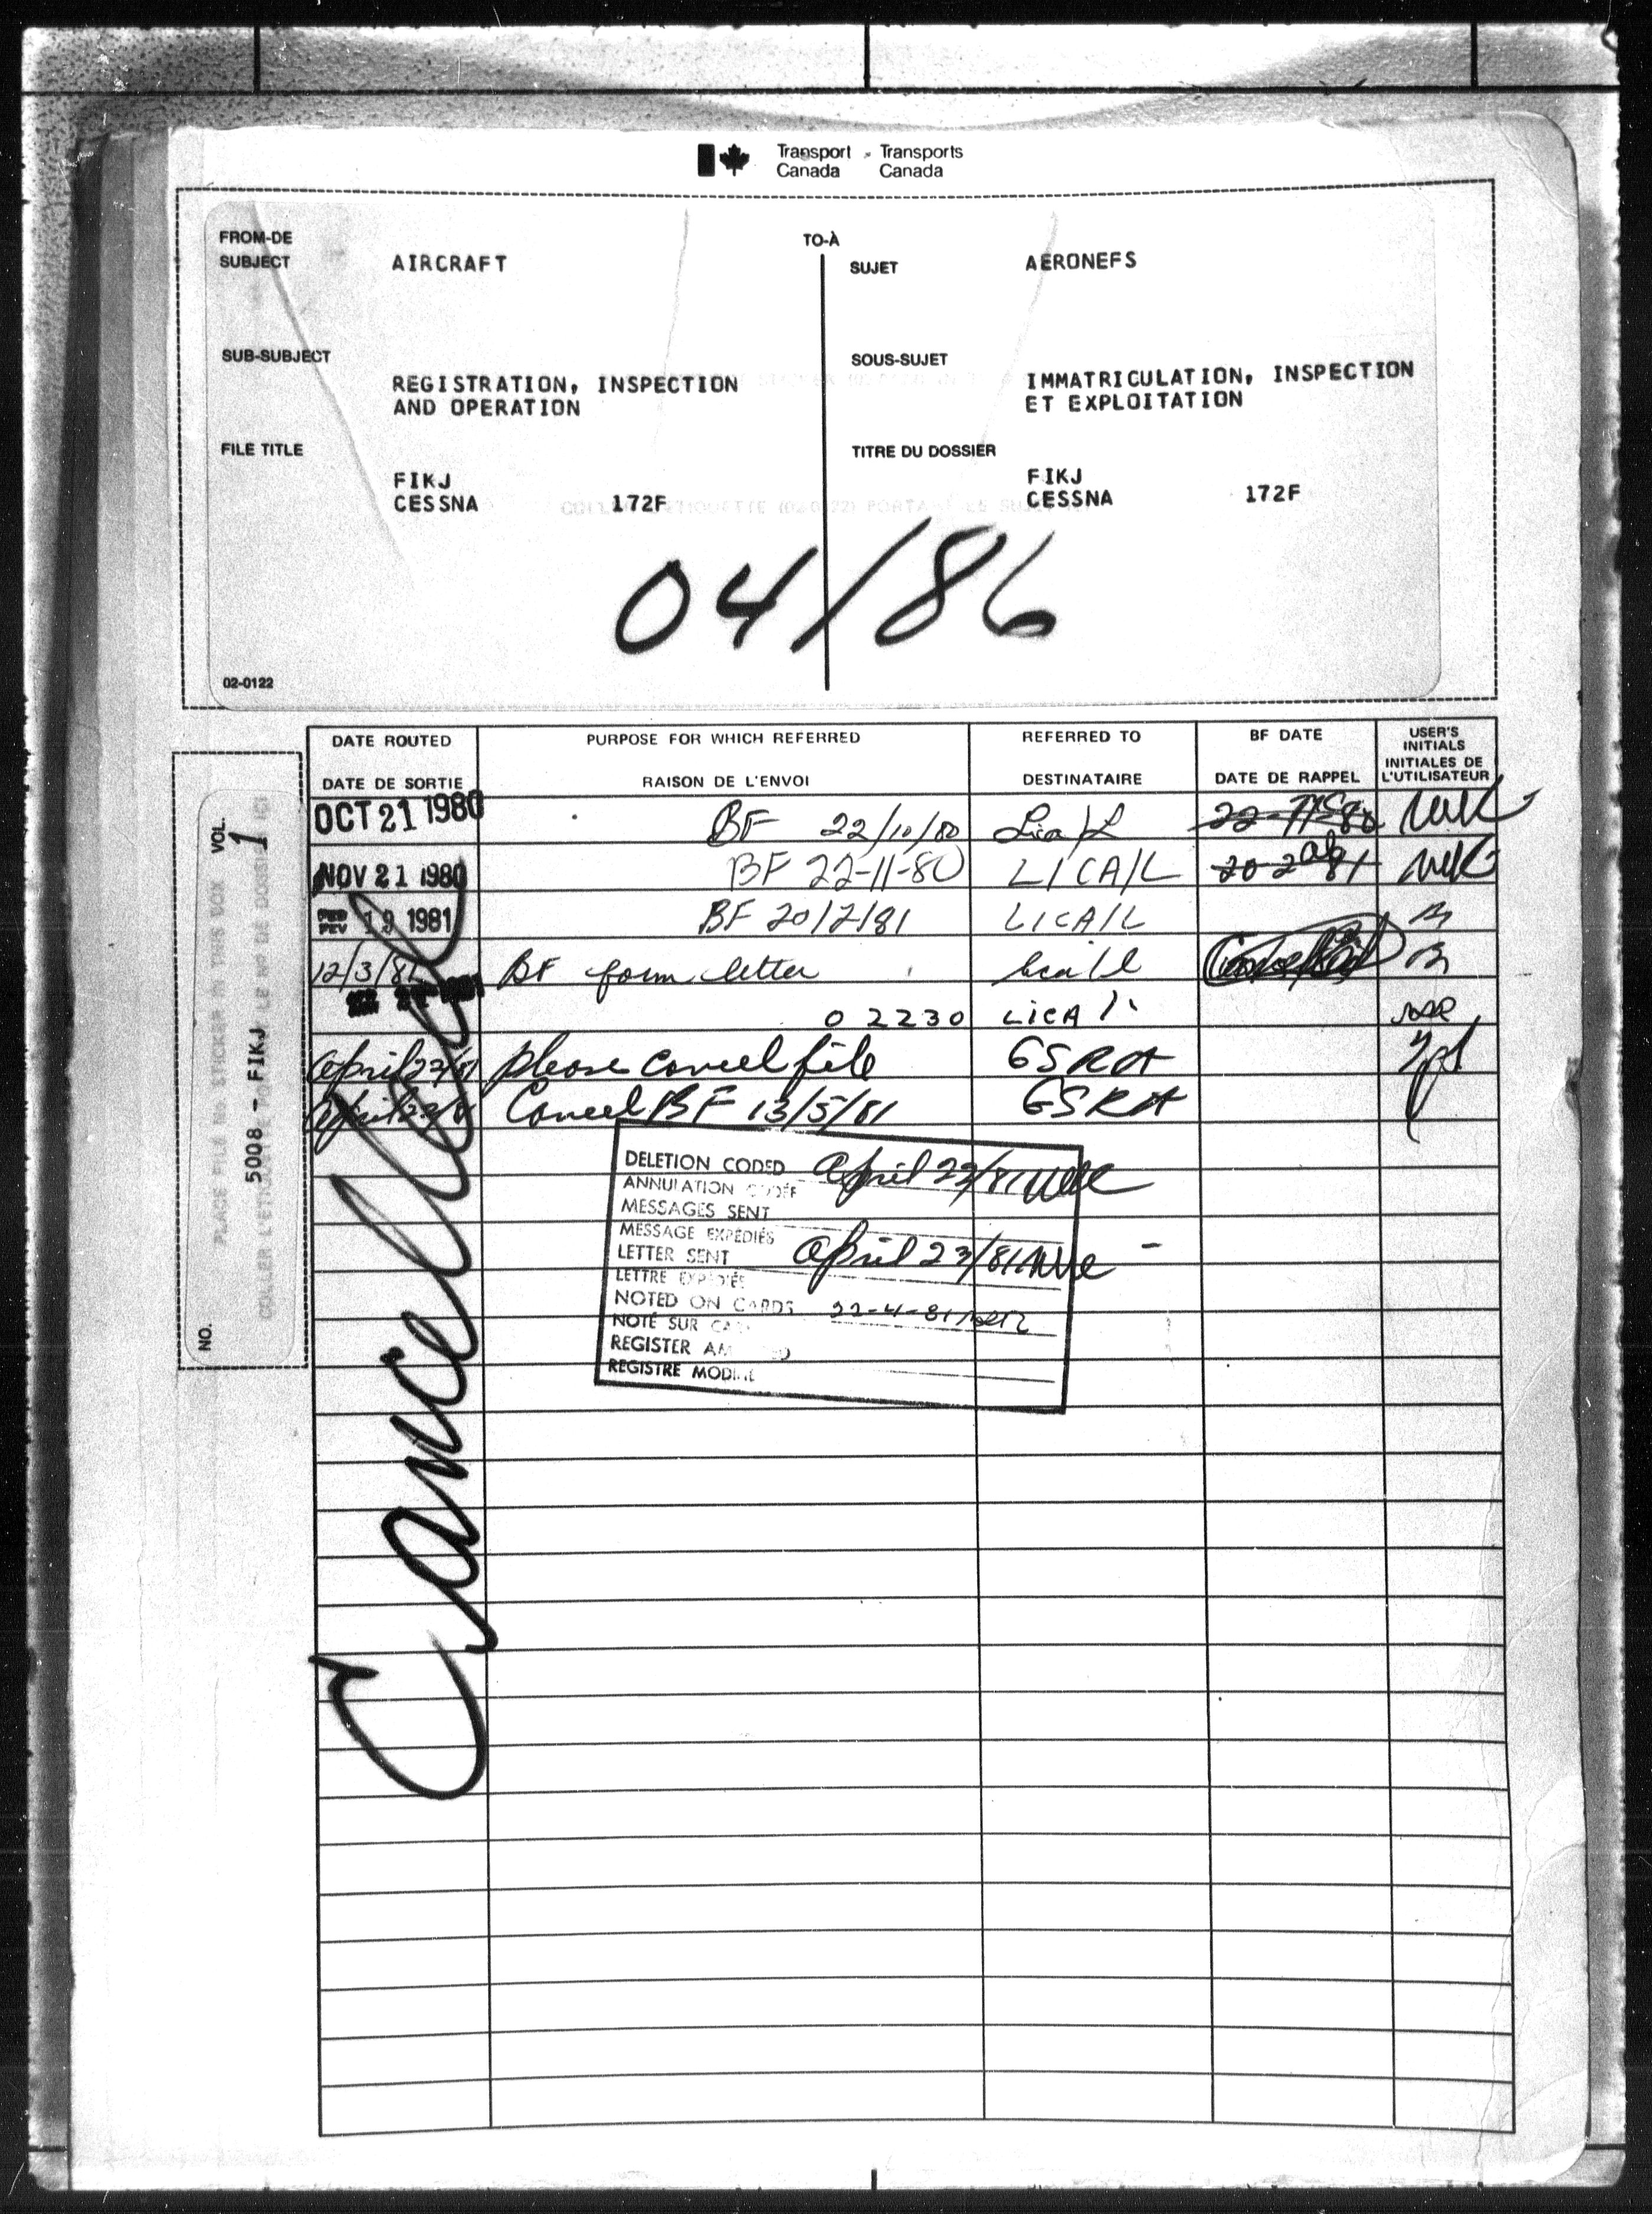 Transport Canada Transports Canada
FROM-DE TO-À
SUBJECT AIRCRAFT SUJET AERONEFS
SUB-SUBJECT SOUS-SUJET
REGISTRATION, INSPECTION IMMATRICULATION, INSPECTION
AND OPERATION ET EXPLOITATION
FILE TITLE TITRE DU DOSSIER
FIKJ FIKJ
CESSNA 172F CESSNA 172F
04/86
02-0122
DATE ROUTED PURPOSE FOR WHICH REFERRED REFERRED TO BF DATE USER'S INITIALS
DATE DE SORTIE RAISON DE L'ENVOI DESTINATAIRE DATE DE RAPPEL INITIALES DE L'UTILISATEUR
OCT 21 1980 BF 22/10/80 Lica/L
NOV 21 1980 BF 22-11-80 LICA/L
FEB FEV 19 1981 BF 20/2/81 LICA/L
12/3/81 BF form letter lica/l
0 2230 LICA
April 22/81 please cancel file GSRA
April 22/81 Cancel BF 13/5/81 GSRA
DELETION CODED April 22/81
ANNULATION CODÉE
MESSAGES SENT
MESSAGE EXPÉDIÉS
LETTER SENT April 23/81
LETTRE EXPÉDIÉE
NOTED ON CARDS 22-4-81
NOTÉ SUR
REGISTER
REGISTRE
Cancelled
NO. 5008 - FIKJ VOL. 1
PLACE FILE No. STICKER IN THIS BOX